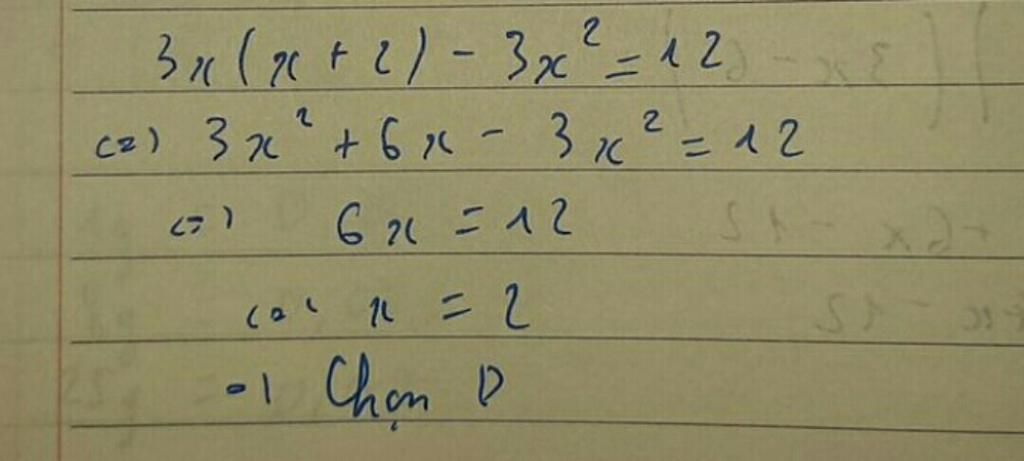 3x(x + 2) - 3x² = 12
(=) 3x² + 6x - 3x² = 12
(=) 6x = 12
(=) x = 2
=) Chọn D